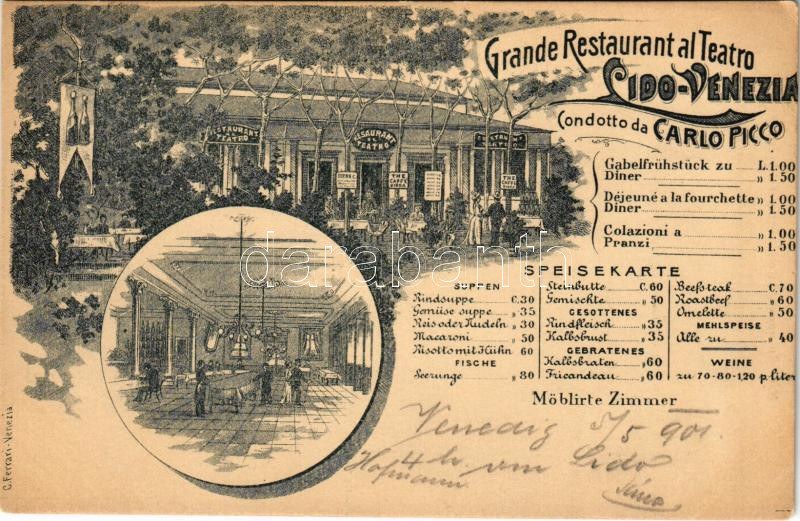 Grande Restaurant al Teatro
LIDO-VENEZIA
Condotto da CARLO PICCO
RESTAURANT
TEATRO
RESTAURANT
AL
TEATRO
RESTAURANT
TEATRO
THE
CAFFE
BIRRA
THE
CAFFE
Gabelfrühstück zu L. 1.00
Diner " 1.50
Déjeuné a la fourchette " 1.00
Diner " 1.50
Colazioni a " 1.00
Pranzi " 1.50
SPEISEKARTE
SUPPEN
Rindsuppe C. 30
Gemüse suppe " 35
Reis oder Nudeln " 30
Macaroni " 50
Risotto mit Hühn 60
FISCHE
Seezunge " 80
Steinbutte C. 60
Gemischte " 50
GESOTTENES
Rindfleisch " 35
Kalbsbrust " 35
GEBRATENES
Kalbsbraten " 60
Fricandeau " 60
Beefsteak C. 70
Roastbeef " 60
Omelette " 50
MEHLSPEISE
Alle zu " 40
WEINE
zu 70-80-1,20 p. liter
Möblirte Zimmer
Venedig 5/5 901.
4 h am Lido
Hofmann
C. Ferrari-Venezia
darabanth